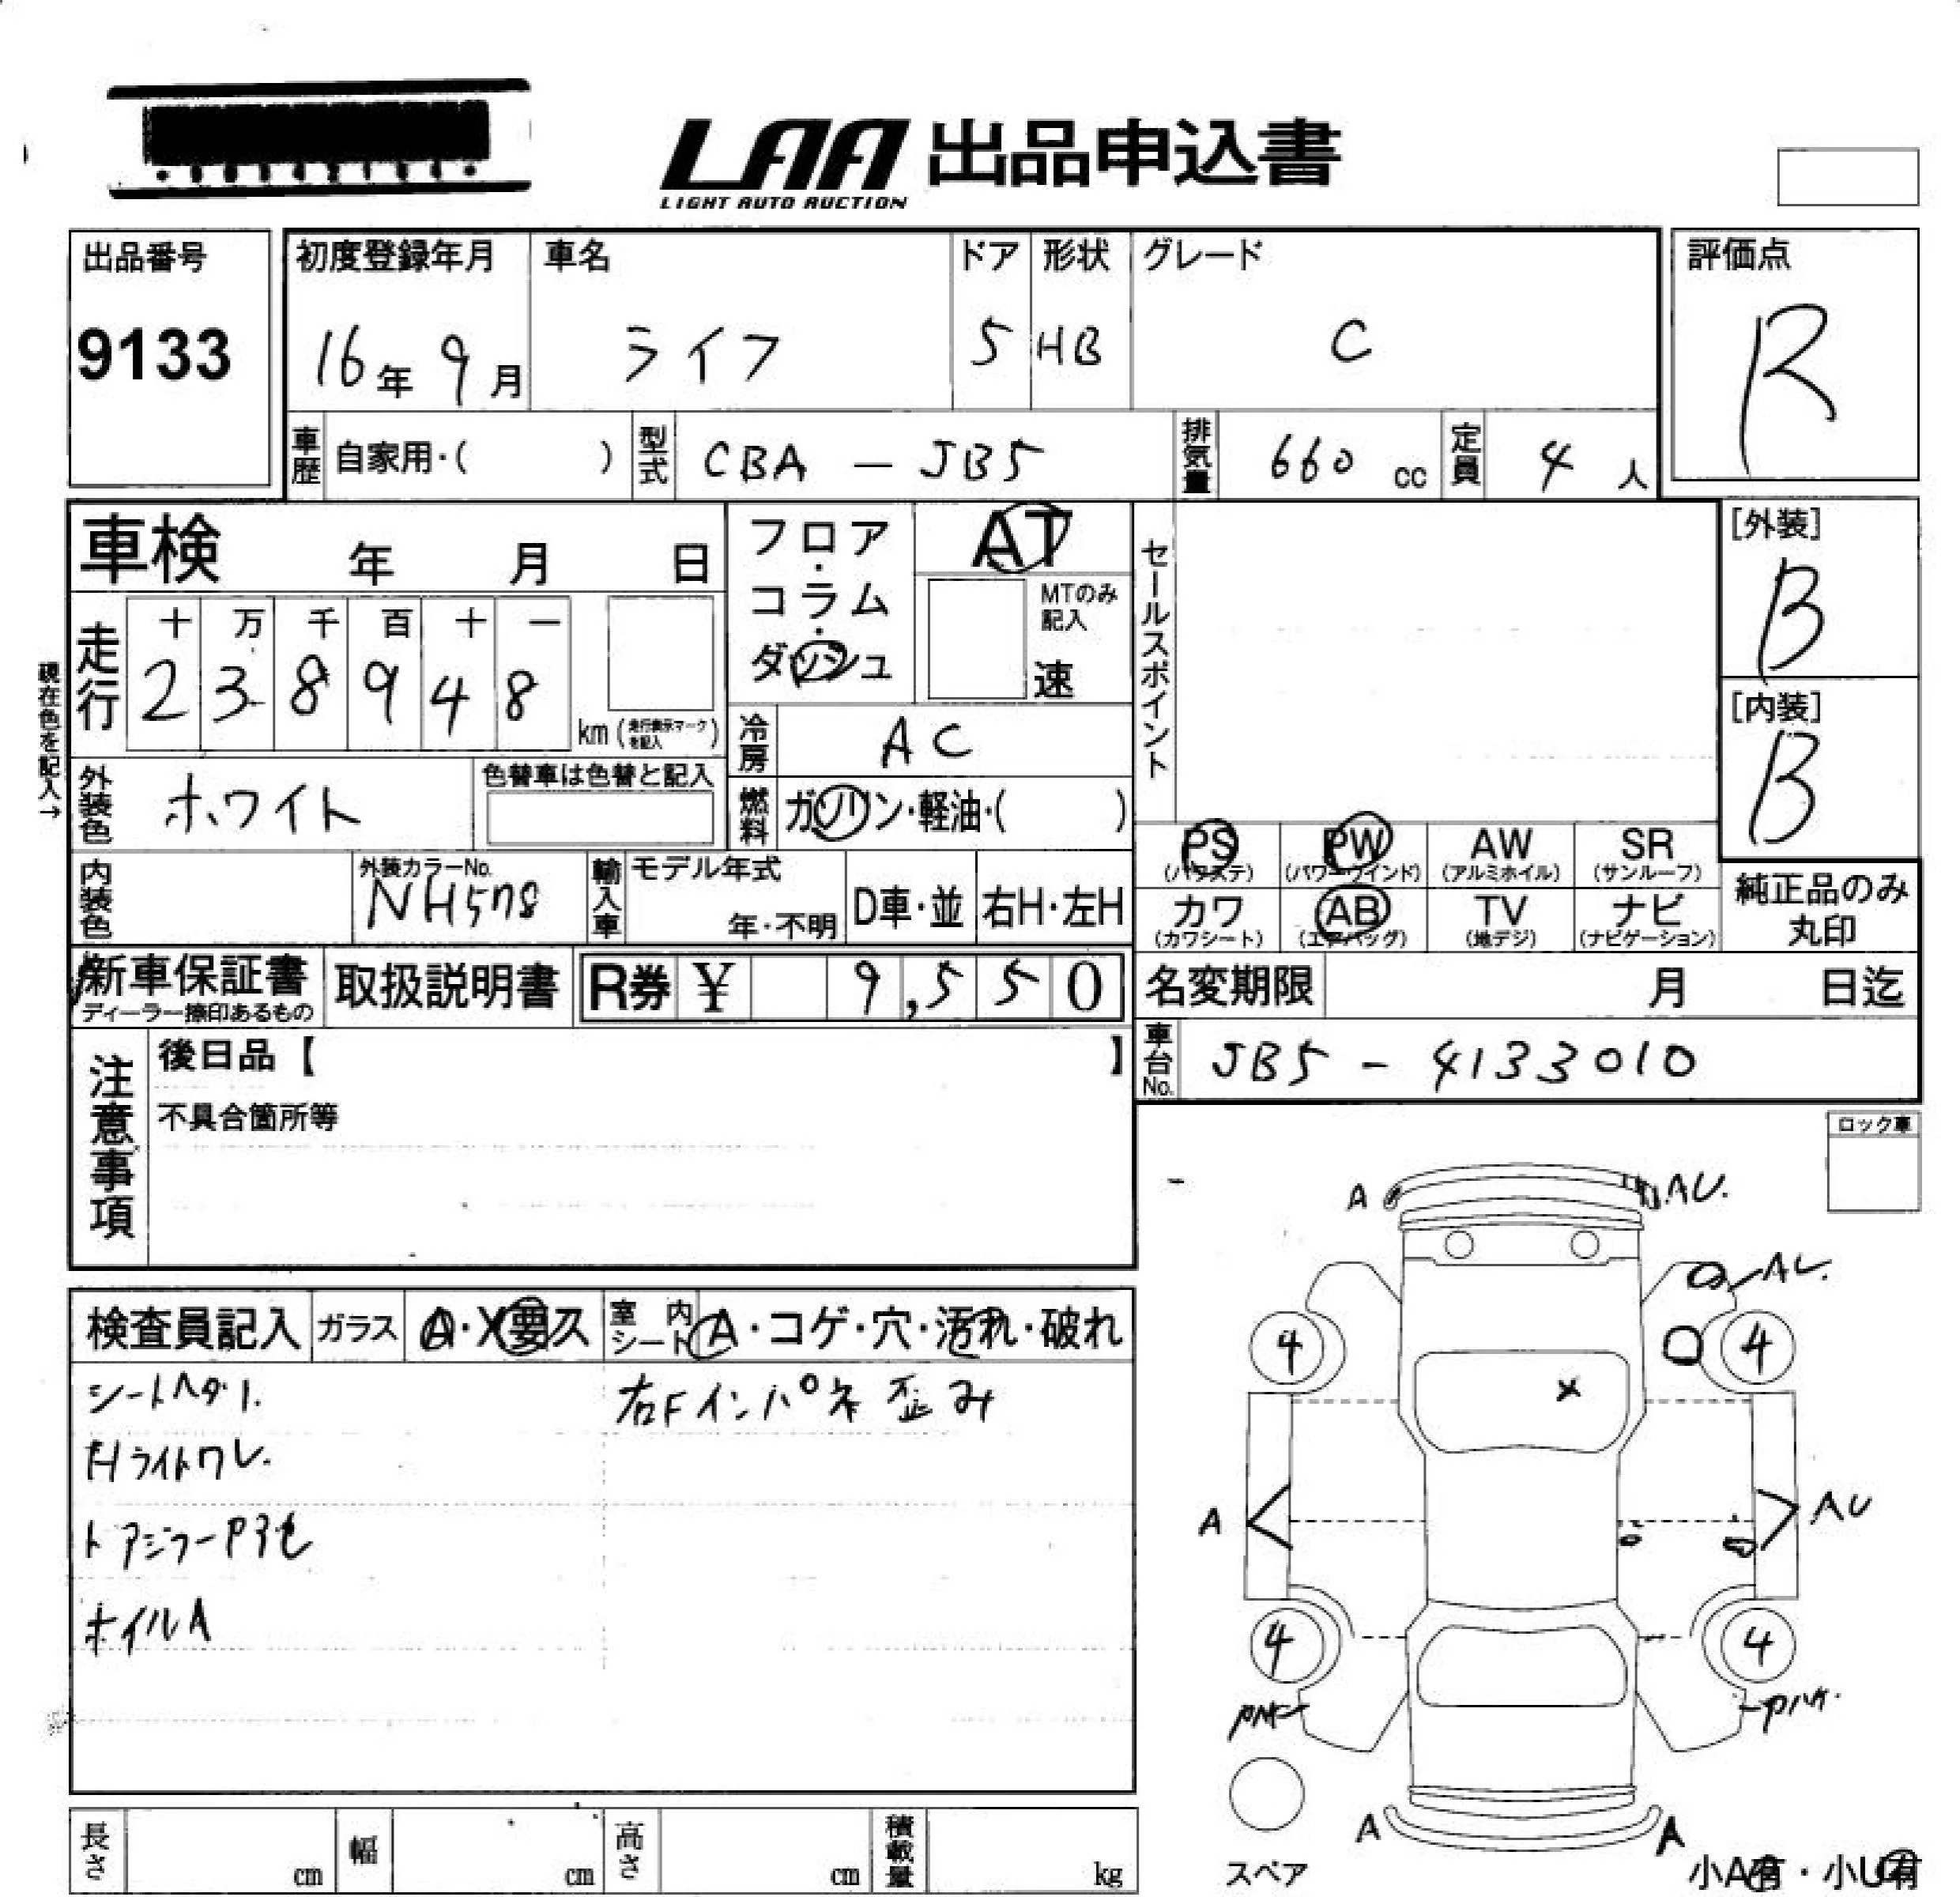 LAA 出品申込書
LIGHT AUTO AUCTION
出品番号 初度登録年月 車名 ドア 形状 グレード 評価点
9133 16年 9月 ライフ 5 HB C R
車歴 自家用・( ) 型式 CBA - JB5 排気量 660 cc 定員 4 人
車検 年 月 日 フロア・コラム・ダッシュ AT セールスポイント [外装]
MTのみ記入 速 B
走行 十 万 千 百 十 一
2 3 8 9 4 8 km (走行表示マークを記入)
現在色を記入→
冷房 AC [内装]
B
外装色 ホワイト 色替車は色替と記入 燃料 ガソリン・軽油・( )
PS (パワステ) PW (パワーウインド) AW (アルミホイル) SR (サンルーフ)
内装色 外装カラーNo. NH578 輸入車 モデル年式 年・不明 D車・並 右H・左H
カワ (カワシート) AB (エアバッグ) TV (地デジ) ナビ (ナビゲーション) 純正品のみ丸印
新車保証書 ディーラー捺印あるもの 取扱説明書 R券 ¥ 9,550 名変期限 月 日迄
車台No. JB5 - 4133010
注意事項 後日品【 】
不具合箇所等
ロック車
検査員記入 ガラス A・X要ス 室内シート A・コゲ・穴・汚れ・破れ
シートヘタリ. 右Fインパネ歪み
Hライトワレ.
ドアミラー
ホイルA
A AU.
AU.
4 4
X
A AU
4 4
A A
スペア
小A有・小U有
長さ cm 幅 cm 高さ cm 積載量 kg